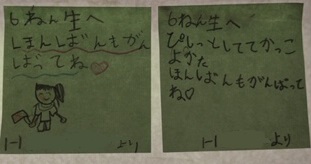 6ねん生へ
ほんばんもがん
ばってね♡
1-1 より
6ねん生へ
ぴしっとしててかっこ
よかた
ほんばんもがんばって
ね♡
1-1 より